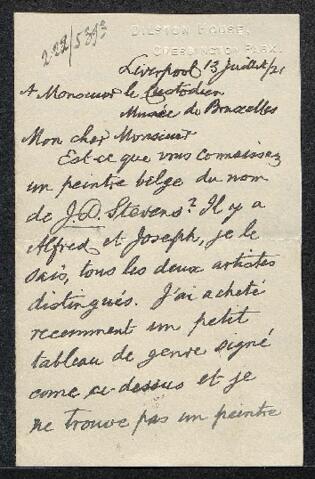 222/5393
DILSTON HOUSE,
CRESSINGTON PARK.
Liverpool 13 Juillet/21
A Monsieur le Custodien
Musée de Bruxelles
Mon cher Monsieur
Est-ce que vous connaissez
un peintre belge du nom
de J. D. Stevens? Il y a
Alfred et Joseph, je le
sais, tous les deux artistes
distingués. J'ai acheté
recemment un petit
tableau de genre signé
come ci-dessus et je
ne trouve pas un peintre